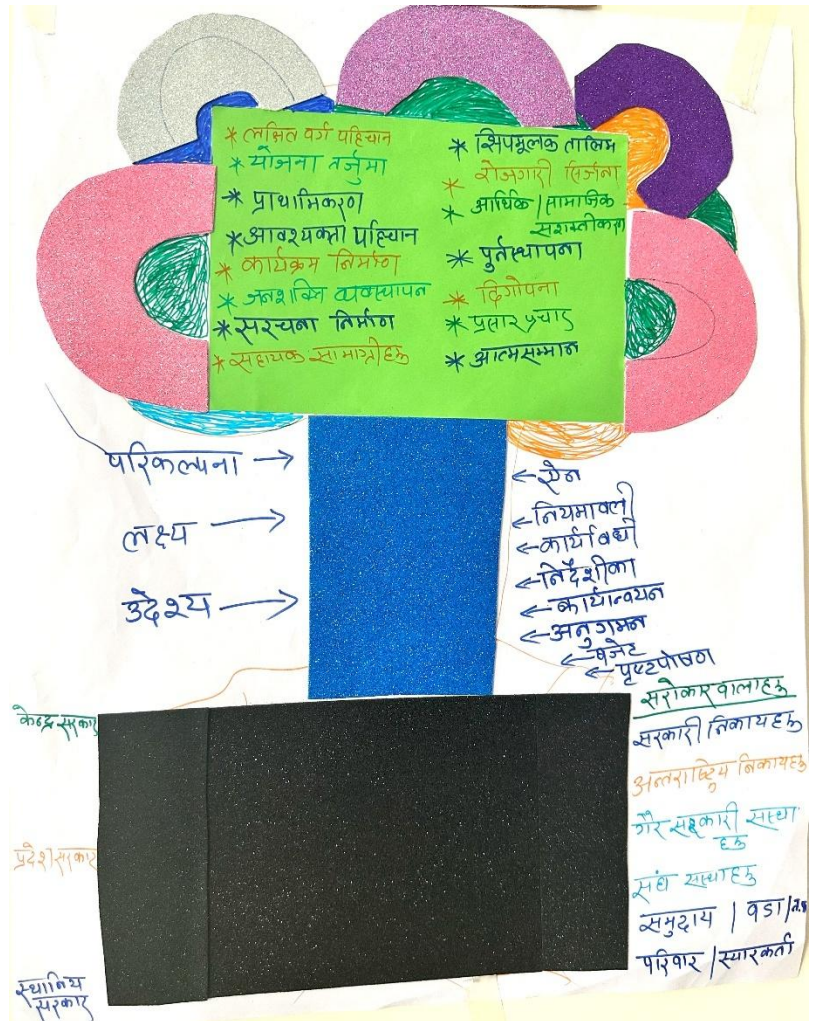 * लक्षित वर्ग पहिचान
* योजना तर्जुमा
* प्राथामिकरण
* आवश्यकता पहिचान
* कार्यक्रम निर्माण
* जनशक्ति व्यवस्थापन
* संरचना निर्माण
* सहायक सामाग्रीहरु
* सिपमूलक तालिम
* रोजगारी सिर्जना
* आर्थिक / सामाजिक
सशक्तीकरण
* पुर्नस्थापना
* दिगोपना
* प्रसार प्रचार
* आत्मसम्मान
परिकल्पना →
लक्ष्य →
उदेश्य →
← ऐन
← नियमावली
← कार्याबधी
← निर्देशीका
← कार्यान्वयन
← अनुगमन
← बजेट
← पृष्टपोषण
केन्द्र सरकार
प्रदेश सरकार
स्थानिय
सरकार
सरोकारवालाहरु
सरकारी निकायहरु
अन्तराष्ट्रिय निकायहरु
गैर सरकारी सस्था
हरु
संघ सस्थाहरु
समुदाय / वडा /
परिवार / स्याहारकर्ता